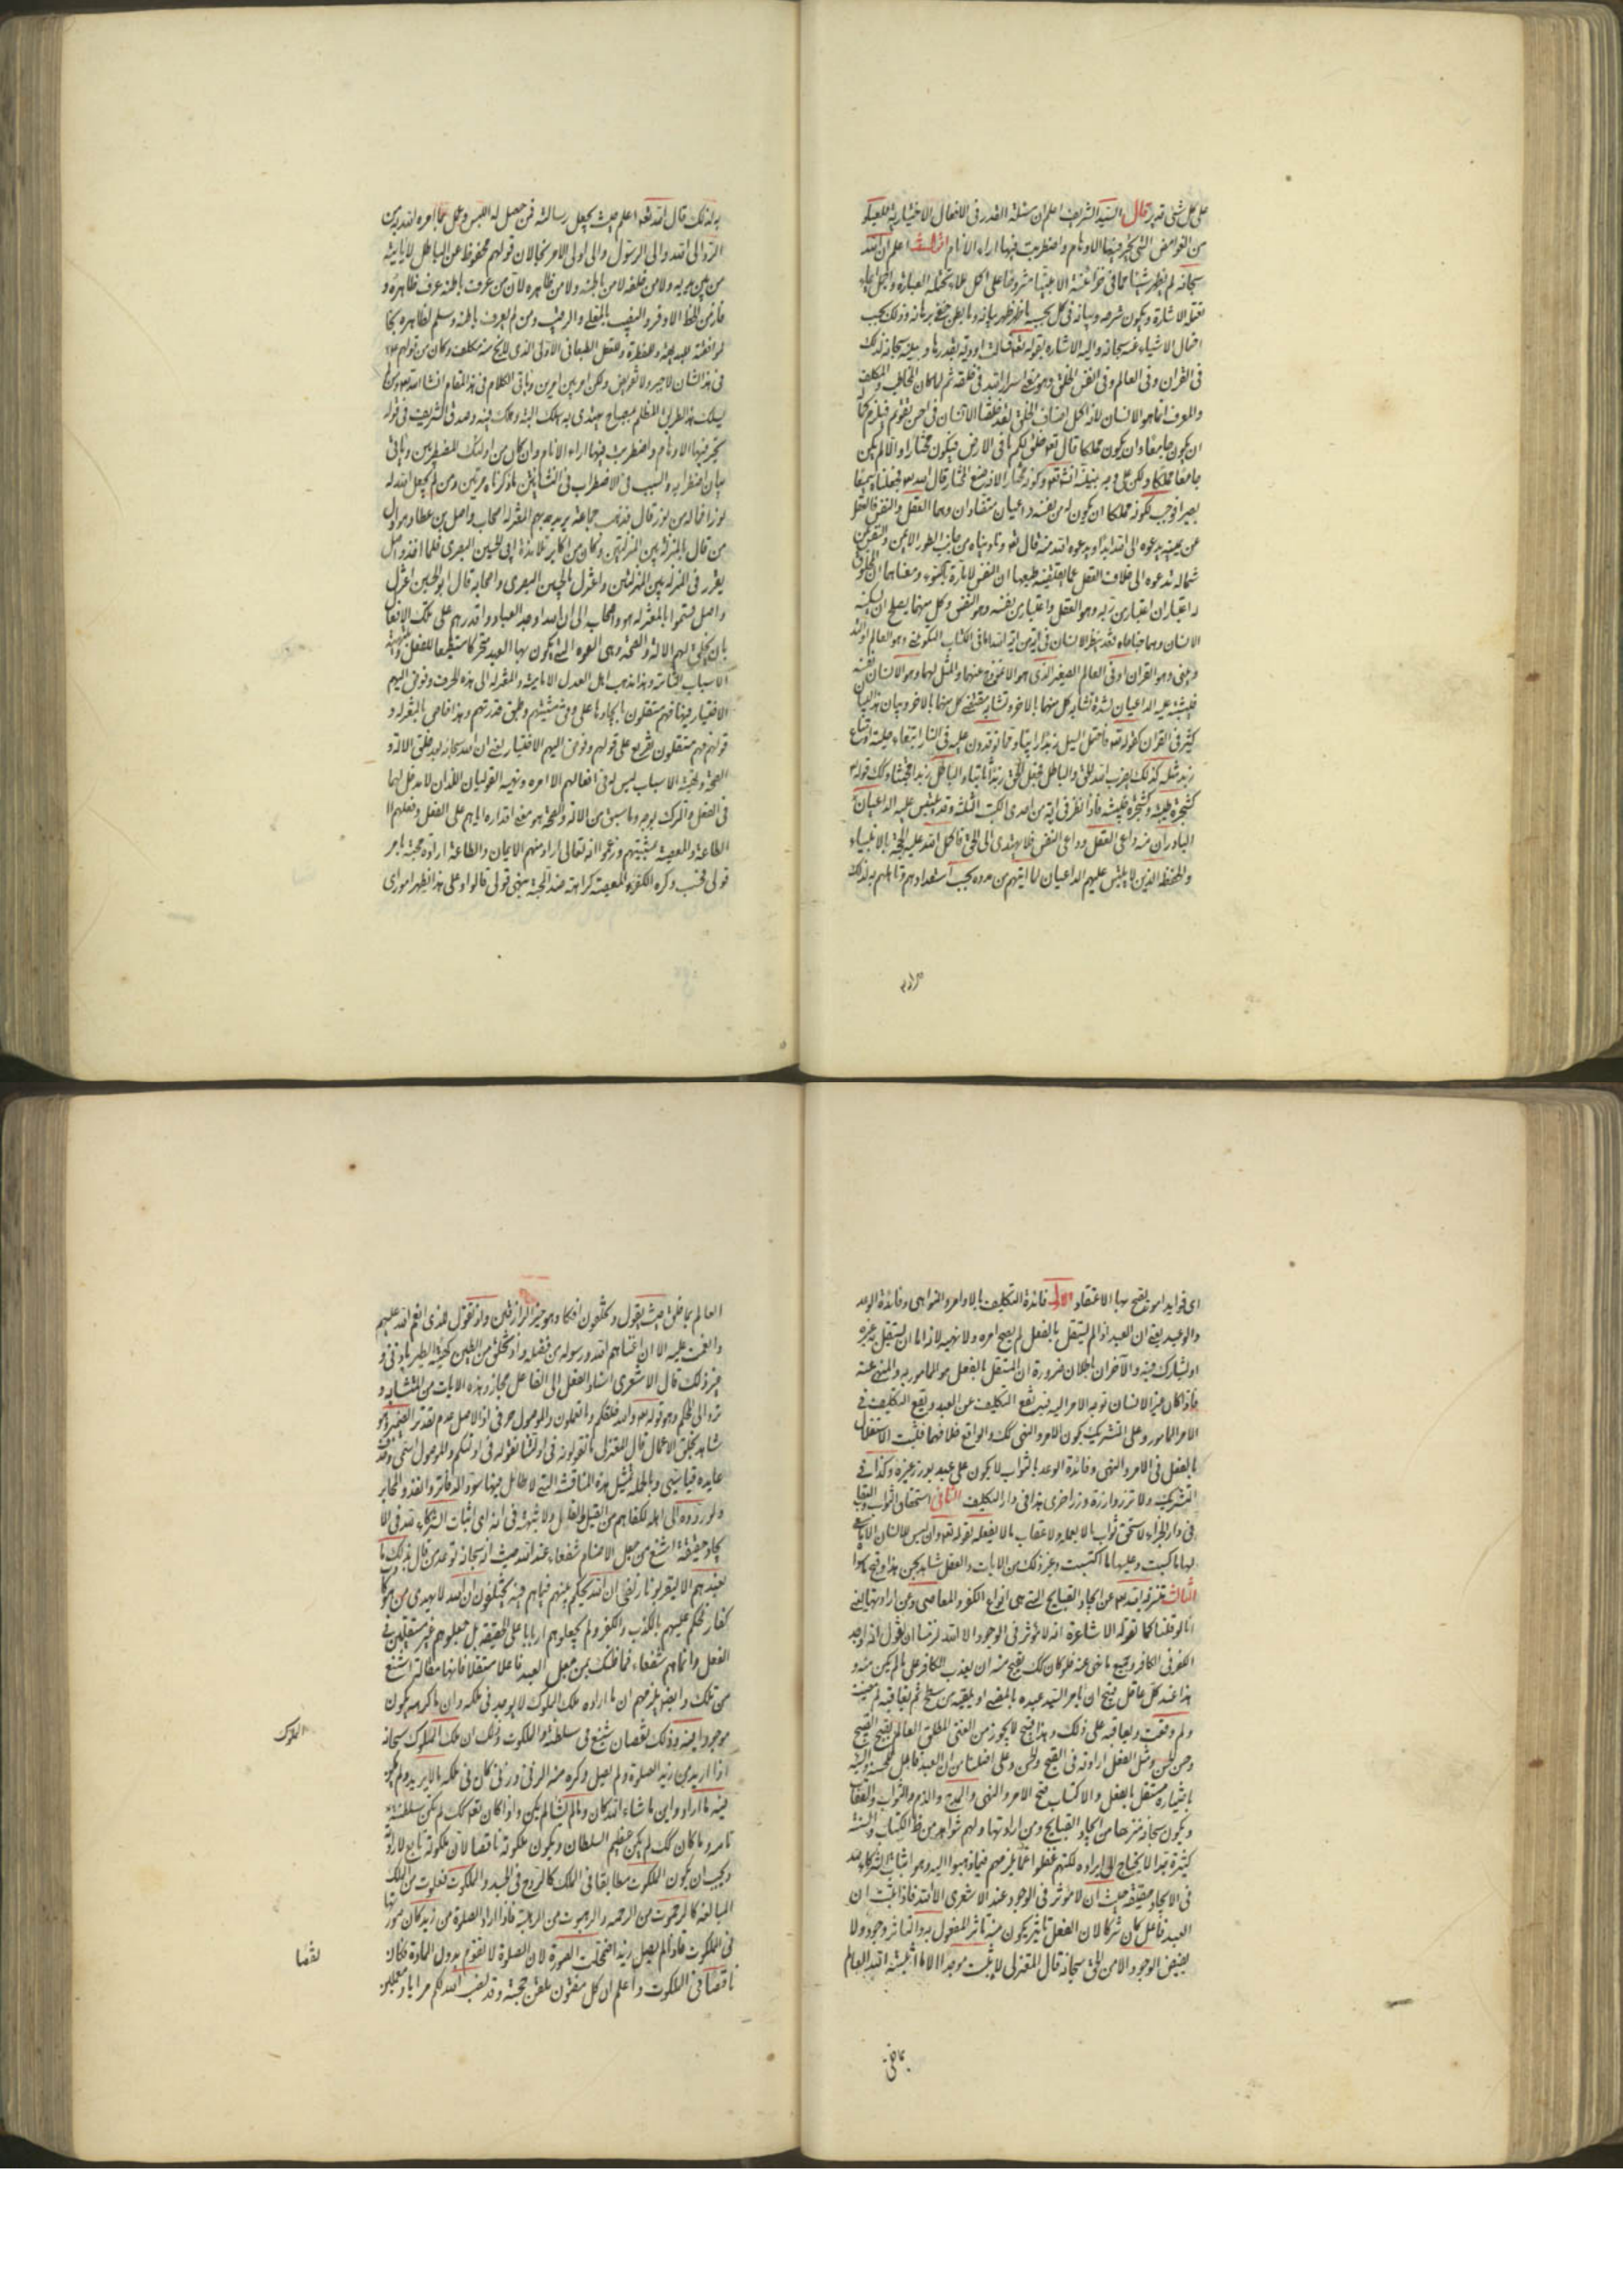 على كل شئ قدير قال السيد الشريف اعلم ان مسئلة القدر فى الافعال الاختيارية للعباد
من الغوامض التى تحير فيها الاوهام واضطربت فيها اراء الانام اقول اعلم ان الله
سبحانه لم يظهر شيئا مما فى خزائنه الا مشروحا على اكمل ما تحتمله العبارة
تقبله الاشارة ويكون شرحه وبيانه فى كل بحسبه وذلك بحسب
افعال الاشياء عنه سبحانه واليه الاشارة بقوله تعالى فسالت اودية بقدرها وبينه سبحانه لذلك
فى القران وفى العالم وفى انفس الخلق وهو منتهى اسرار الله فى خلقه ثم لما كان المخاطب والمكلف
والمعرف انما هو الانسان لانه اكمل اصناف الخلق لقد خلقنا الانسان فى احسن تقويم فيلزم
ان يكون جامعا وان يكون مملكا قال تعالى خلق لكم ما فى الارض فيكون مختارا والا لم يكن
جامعا مملكا ولكن على قال فجعلناه سميعا
بصيرا فوجب لكونه مملكا ان يكون له من نفسه داعيان متضادان وهما العقل والنفس فالعقل
عن يمينه يدعوه الى الله ابدا ويدعوه الله منه قال تعالى وناديناه من جانب الطور الايمن والنفس عن
شماله تدعوه الى خلاف العقل بما تقتضيه طبيعتها ان النفس لامارة بالسوء ومعناهما ان المخلوق
له اعتباران اعتبار من ربه وهو العقل واعتبار من نفسه وهو النفس وكل منهما يصلح ان
الانسان وهما جناحاه فقد ينظر الانسان فى اية من ايات الله اما فى الكتاب التكوينى وهو العالم او
وهو القران او فى العالم الصغير الذى هو الانموذج منهما والمثل لهما وهو الانسان نفسه
فيشتبه عليه الداعيان لشدة تشابه كل منهما بالاخر وتشابه مقتضى كل منهما بالاخر وبيان هذا
كثير فى القران كقوله تعالى فاحتمل السيل زبدا رابيا ومما توقدون عليه فى النار ابتغاء حلية او متاع
زبد مثله كذلك يضرب الله الحق والباطل وكذلك قوله
كشجرة طيبة وكشجرة خبيثة فاذا نظر فى اية من احدى الكتب الثلثة وقد يلتبس عليه الداعيان
البادران من داعى العقل وداعى النفس فلا يهتدى الى الحق فاكمل الله عليه الحجة بالانبياء
والحفظة الذين لا يلتبس عليهم الداعيان لما ايدهم من مدده بحسب استعدادهم وتاهلهم به لذلك
به لذلك قال الله تعالى اعلم حيث يجعل رسالته فمن حصل له اللبس وعمل بما امره الله به من
الرد الى الله والى الرسول والى اولى الامر نجا لان قولهم محفوظ عن الباطل لا ياتيه
من بين يديه ولا من خلفه لا من باطنه ولا من ظاهره لان من عرف باطنه عرف ظاهره و
فاز من الحظ الاوفر والنصيب بالمعلى والرقيب ومن لم يعرف باطنه وسلم لظاهره نجا
فى هذا الشان لا جبر ولا تفويض ولكن امر بين امرين وياتى الكلام فى هذا المقام انشاء الله ومن لم
يسلك هذا الطريق المظلم بمصباح يهتدى به هلك البتة وهلك فيه وصدق الشريف فى قوله
تحير فيها الاوهام واضطربت فيها اراء الانام وان كان من اولئك المضطربين وياتى
بيان اضطرابه والسبب فى الاضطراب فى ما ذكرناه مرتين ومن لم يجعل الله له
نورا فما له من نور قال فذهب جماعة يريد بهم المعتزلة اصحاب واصل بن عطا وهو اول
من قال بالمنزلة بين المنزلتين وكان من اكابر تلامذة ابى الحسين البصرى فلما اخذ واصل
يقرر فى المنزلة بين المنزلتين واعتزل بالحسين البصرى واصحابه قال ابو الحسين اعتزل
واصل فسموا بالمعتزلة هو واصحابه الى ان الله اوجد العباد واقدرهم على تلك الافعال
بان يخلق لهم الالة والصحة وهى القوة التى يكون بها العبد متحركا مستطيعا للفعل وتهيئة
الاسباب وهذا مذهب اهل العدل الامامية والمعتزلة الى هذه الحرف وفوض اليهم
الاختيار فيها فهم مستقلون بايجادها على وفق مشيتهم وطبق قدرتهم وهذا خاص بالمعتزلة و
قولهم فهم مستقلون تفريع على قولهم وفوض اليهم الاختيار يعنى ان الله سبحانه بعد خلق الالة و
الصحة وتخلية الاسباب ليس له فى افعالهم الا امره ونهيه القوليان اللذان لا مدخل لهما
فى الفعل والترك بوجه وما سبق من الالة والصحة هو معنى اقداره اياهم على الفعل وفعلهم
الطاعة والمعصية بمشيتهم وزعموا انه تعالى اراد منهم الايمان والطاعة ارادة محبة بامر
قولى فحسب وكره الكفر والمعصية كراهة ضد المحبة بنهى قولى قالوا وعلى هذا يظهر امور اى
اى فوايد امور يفتح بها الاعتقاد الاول فائدة التكليف بالاوامر والنواهى وفائدة الوعد
والوعيد يعنى ان العبد اذا لم يستقل بالفعل لم يصح امره ولا نهيه لانه اما ان يستقل به غيره
او يشارك فيه والاخران باطلان ضرورة ان المستقل بالفعل هو المامور به والمنهى عنه
فاذا كان غير الانسان توجه الامر اليه فيرتفع التكليف عن العبد ويقع التكليف فى
الامر المامور وعلى التشريك يكون الامر والنهى كك والواقع خلافهما فثبت الاستقلال
بالفعل فى الامر والنهى وفائدة الوعد بالثواب لا يكون على عبد بوزر غيره وكذا فى
التشريك ولا تزر وازرة وزر اخرى هذا فى دار التكليف الثانى استحقاق الثواب والعقاب
فى دار الجزاء لا يستحق ثواب ما لا يعمله ولا عقاب ما لا يفعله لقوله تعالى وان ليس للانسان الا ما سعى
لها ما كسبت وعليها ما اكتسبت وغير ذلك من الايات والعقل شاهد بحسن هذا وقبح ما سواه
الثالث تنزيه الله عن ايجاد القبايح التى هى انواع الكفر والمعاصى وعن ارادتها يعنى
انا لو قلنا كما تقوله الاشاعرة انه لا مؤثر فى الوجود الا الله لزمنا ان نقول انه اوجد
الكفر فى الكافر وهو تعالى نهى عنه فلو كان كك لقبح منه ان يعذب الكافر على ما لم يكن منه و
هذا عند كل عاقل قبيح ان يامر السيد عبده بالمضى او يلقيه من سطح ثم يعاقبه لم مضيت
ولم وقعت ويعاقبه على ذلك وهذا قبيح لا يجوز من الغنى المطلق العالم بقبح القبيح
وحسن الحسن ومثل الفعل ارادته فى القبح والحسن وعلى ما قلنا من ان العبد فاعل لحسنه وقبيحه
باختياره مستقل بالفعل والاكتساب صح الامر والنهى والمدح والذم والثواب والعقاب
ويكون سبحانه منزها من ايجاد القبايح ومن ارادتها ولهم شواهد من ظ الكتاب والسنة
كثيرة جدا لا يحتاج الى ايراده لكنهم غفلوا عما يلزمهم فيما ذهبوا اليه وهو اثبات الشركاء لله
فى الايجاد حقيقة حيث ان لا مؤثر فى الوجود عند الاشعرى الا الله فاذا اثبت ان
العبد فاعل كان شركا لان الفعل تاثير يكون منه تاثر المفعول به والتاثر وجود ولا
يفيض الوجود الا من الحق سبحانه قال المعتزلى لا يثبت موجدا الا ما اثبته الله العالم
العالم بما خلق حيث يقول وتخلقون افكا وهو خير الرازقين واذ تقول للذى انعم الله عليه
وانعمت عليه الا ان اغناهم الله ورسوله من فضله واذ تخلق من الطين كهيئة الطير باذنى و
غير ذلك قال الاشعرى اسناد الفعل الى الفاعل مجاز وهذه الايات من المتشابه و
ترد الى المحكم وهو قوله تعالى والله خلقكم وما تعملون والموصول حرفى اذ الاصل عدم تقدير الضمير وهو
شاهد بخلق الاعمال قال المعتزلى ما تقولونه
عايده قياسى وبالجملة فمثل هذه المناقشة التى لا طائل فيها سود الدفاتر وانفد المحابر
ولو ردوه الى اهله لكفاهم من القيل والقال ولا شبهة فى انه اى اثبات الشركاء لله فى
الايجاد حقيقة اشنع من جعل الاصنام شفعاء عند الله حيث انه سبحانه توعد من قال بذلك ما
نعبدهم الا ليقربونا زلفى ان الله يحكم بينهم فيما هم فيه يختلفون ان الله لا يهدى من هو كاذب
كفار فحكم عليهم بالكذب والكفر ولم يجعلوهم اربابا على الحقيقة بل جعلوهم غير مستقلين فى
الفعل وانما هم شفعاء فما ظنك بمن جعل العبد فاعلا مستقلا فانها مقالة اشنع
من تلك وايضا يلزمهم ان ما اراده ملك الملوك لا يوجد فى ملكه وان ما كرهه يكون
موجودا فيه وذلك نقصان شنيع فى سلطنة الملكوت وذلك ان ملك الملوك سبحانه
الملوك
اذا اراد من زيد الصلوة ولم يصل وكره منه الزنى وزنى كان فى ملكه ما لا يريد ولم يكن
فيه ما اراد واين ما شاء الله كان وما لم يشا لم يكن واذا كان كك لم يكن سلطنته
تامة وما كان كك لم يكن عظيم السلطان ويكون ملكوته ناقصا لان ملكوته تابع لارادته
ويجب ان يكون الملكوت مطابقا فى الملك كالروح فى الجسد والملكوت فعلوت من الملك
للمبالغة كالرحموت من الرحمة والرهبوت من الرهبة فاذا اراد الصلوة من زيد كان صورتها
فى الملكوت فاذا لم يصل زيد اضمحلت الصورة لان الصلوة لا تقوم بدون المادة فكان
نقصا
ناقصا فى الملكوت واعلم ان كل مفتون ملقن حجته وقد نصب الله لكم مرايا